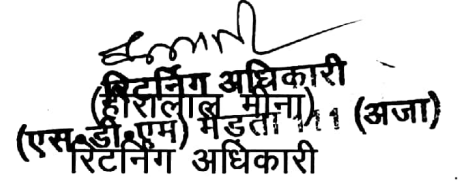 रिटर्निंग अधिकारी
(हीरालाल मीना)
(एस.डी.एम) मेड़ता 111 (अजा)
रिटर्निंग अधिकारी